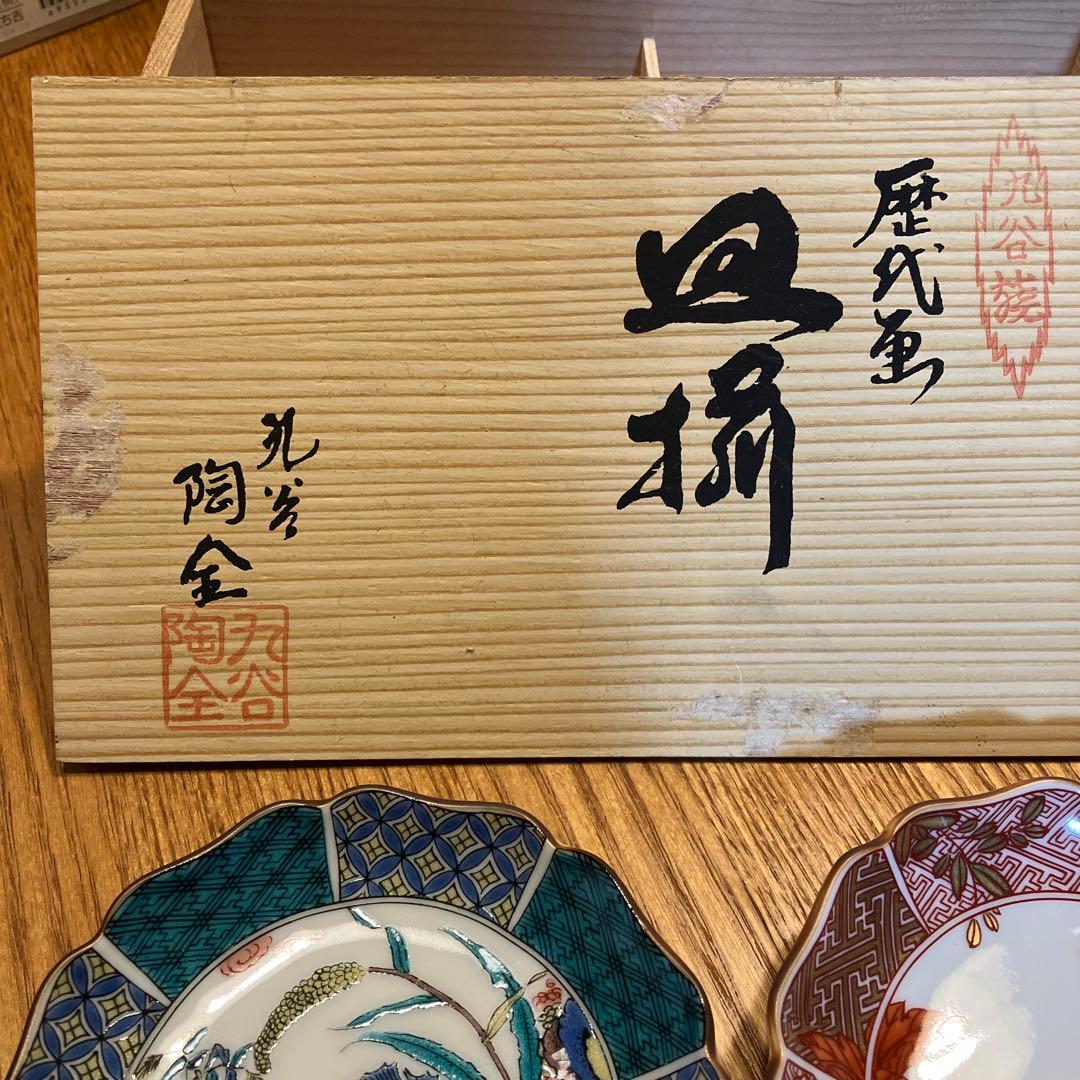 九谷蔟
歴代画
皿揃
九谷
陶全
九谷
陶全